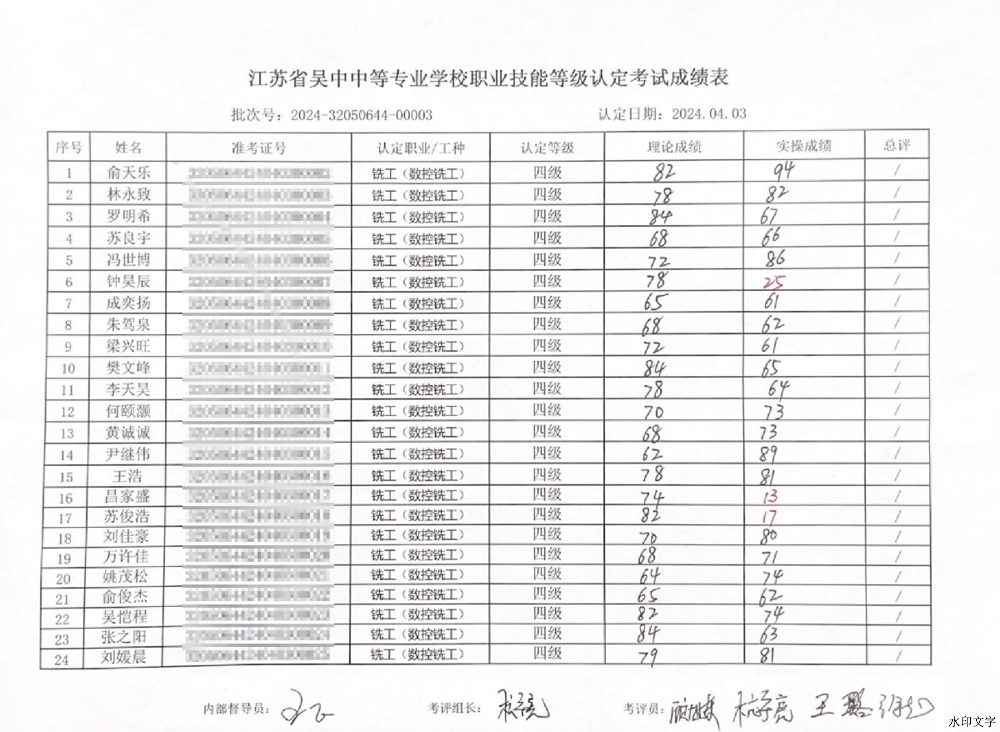 江苏省吴中中等专业学校职业技能等级认定考试成绩表
批次号：2024-32050644-00003 认定日期：2024.04.03
序号 姓名 准考证号 认定职业/工种 认定等级 理论成绩 实操成绩 总评
1 俞天乐 铣工（数控铣工） 四级 82 94 /
2 林永致 铣工（数控铣工） 四级 78 82 /
3 罗明希 铣工（数控铣工） 四级 84 67 /
4 苏良宇 铣工（数控铣工） 四级 68 66 /
5 冯世博 铣工（数控铣工） 四级 72 86 /
6 钟昊辰 铣工（数控铣工） 四级 78 25 /
7 成奕扬 铣工（数控铣工） 四级 65 61 /
8 朱驾泉 铣工（数控铣工） 四级 68 62 /
9 梁兴旺 铣工（数控铣工） 四级 72 61 /
10 樊文峰 铣工（数控铣工） 四级 84 65 /
11 李天昊 铣工（数控铣工） 四级 78 64 /
12 何颐灏 铣工（数控铣工） 四级 70 73 /
13 黄诚诚 铣工（数控铣工） 四级 68 73 /
14 尹继伟 铣工（数控铣工） 四级 62 89 /
15 王浩 铣工（数控铣工） 四级 78 81 /
16 昌家盛 铣工（数控铣工） 四级 74 13 /
17 苏俊浩 铣工（数控铣工） 四级 82 17 /
18 刘佳豪 铣工（数控铣工） 四级 70 80 /
19 万许佳 铣工（数控铣工） 四级 68 71 /
20 姚茂松 铣工（数控铣工） 四级 64 74 /
21 俞俊杰 铣工（数控铣工） 四级 65 62 /
22 吴恺程 铣工（数控铣工） 四级 82 74 /
23 张之阳 铣工（数控铣工） 四级 84 63 /
24 刘媛晨 铣工（数控铣工） 四级 79 81 /
内部督导员： 考评组长： 考评员：
水印文字